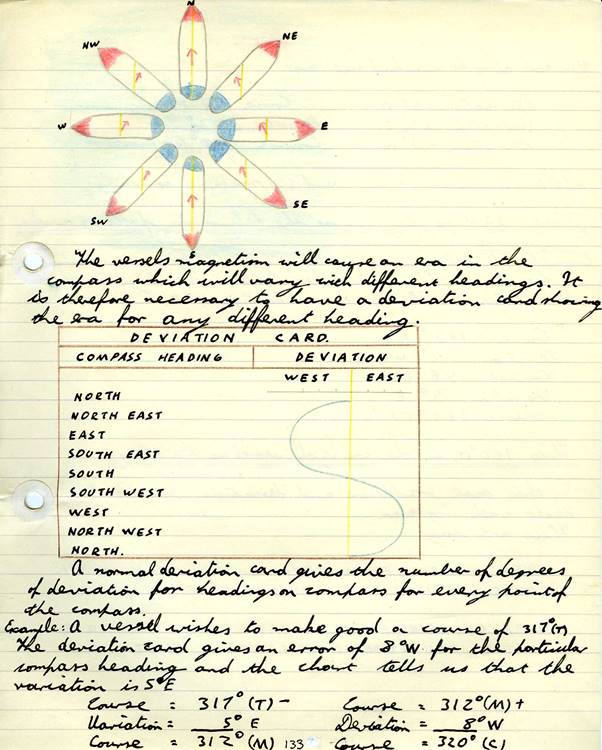 N
NW NE
W E
SW SE
S
The vessels magnetism will cause an era in the
compass which will vary with different headings. It
is therefore necessary to have a deviation card showing
the era for any different heading.
DEVIATION CARD.
COMPASS HEADING DEVIATION
WEST EAST
NORTH
NORTH EAST
EAST
SOUTH EAST
SOUTH
SOUTH WEST
WEST
NORTH WEST
NORTH.
A normal deviation card gives the number of degrees
of deviation for headings on compass for every point of
the compass.
Example: A vessel wishes to make good a course of 317°(T)
The deviation card gives an error of 8°W for the particular
compass heading and the chart tells us that the
variation is 5°E
Course = 317°(T) - Course = 312°(M) +
Variation = 5° E Deviation = 8° W
Course = 312° (M) 133 Course = 320° (C)